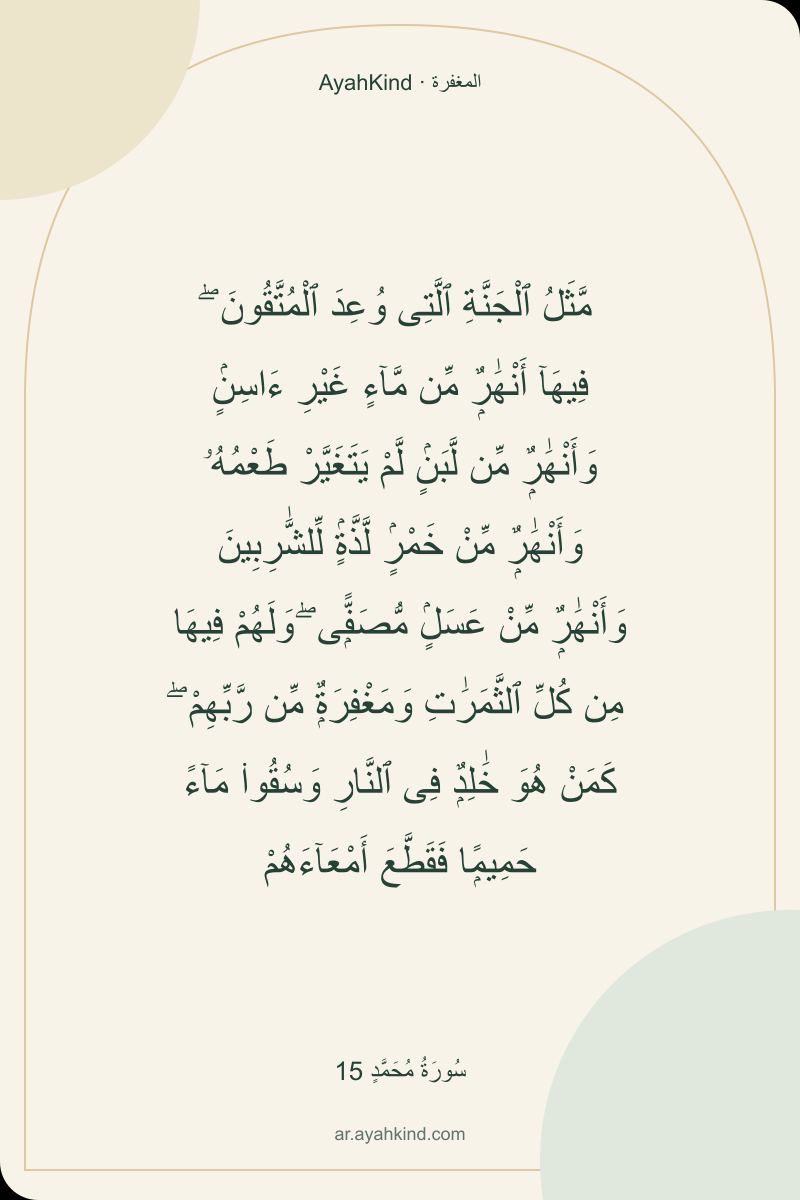 AyahKind · المغفرة
مَّثَلُ ٱلْجَنَّةِ ٱلَّتِى وُعِدَ ٱلْمُتَّقُونَ ۖ
فِيهَآ أَنْهَٰرٌۭ مِّن مَّآءٍ غَيْرِ ءَاسِنٍۢ
وَأَنْهَٰرٌۭ مِّن لَّبَنٍۢ لَّمْ يَتَغَيَّرْ طَعْمُهُۥ
وَأَنْهَٰرٌۭ مِّنْ خَمْرٍۢ لَّذَّةٍۢ لِّلشَّٰرِبِينَ
وَأَنْهَٰرٌۭ مِّنْ عَسَلٍۢ مُّصَفًّۭى ۖ وَلَهُمْ فِيهَا
مِن كُلِّ ٱلثَّمَرَٰتِ وَمَغْفِرَةٌۭ مِّن رَّبِّهِمْ ۖ
كَمَنْ هُوَ خَٰلِدٌۭ فِى ٱلنَّارِ وَسُقُوا۟ مَآءً
حَمِيمًۭا فَقَطَّعَ أَمْعَآءَهُمْ
سُورَةُ مُحَمَّدٍ 15
ar.ayahkind.com